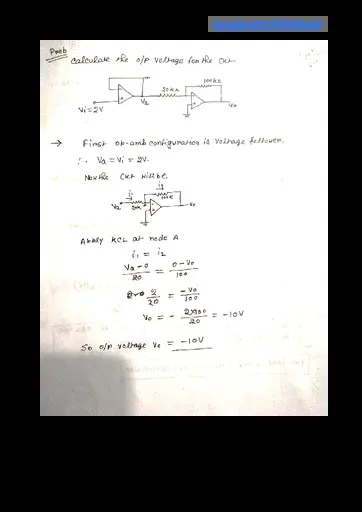 Prob
Calculate the o/p voltage for the ckt
100kΩ
20kΩ
Va
Vo
Vi=2V
→ First op-amp configuration is voltage follower.
∴ Va = Vi = 2V.
Now the ckt will be.
i1
i2
100k
Va
20k
A
Vo
Apply KCL at node A
i1 = i2
Va-0/20 = 0-Vo/100
2/20 = -Vo/100
Vo = - 2×100/20 = -10V
So o/p voltage Vo = -10V